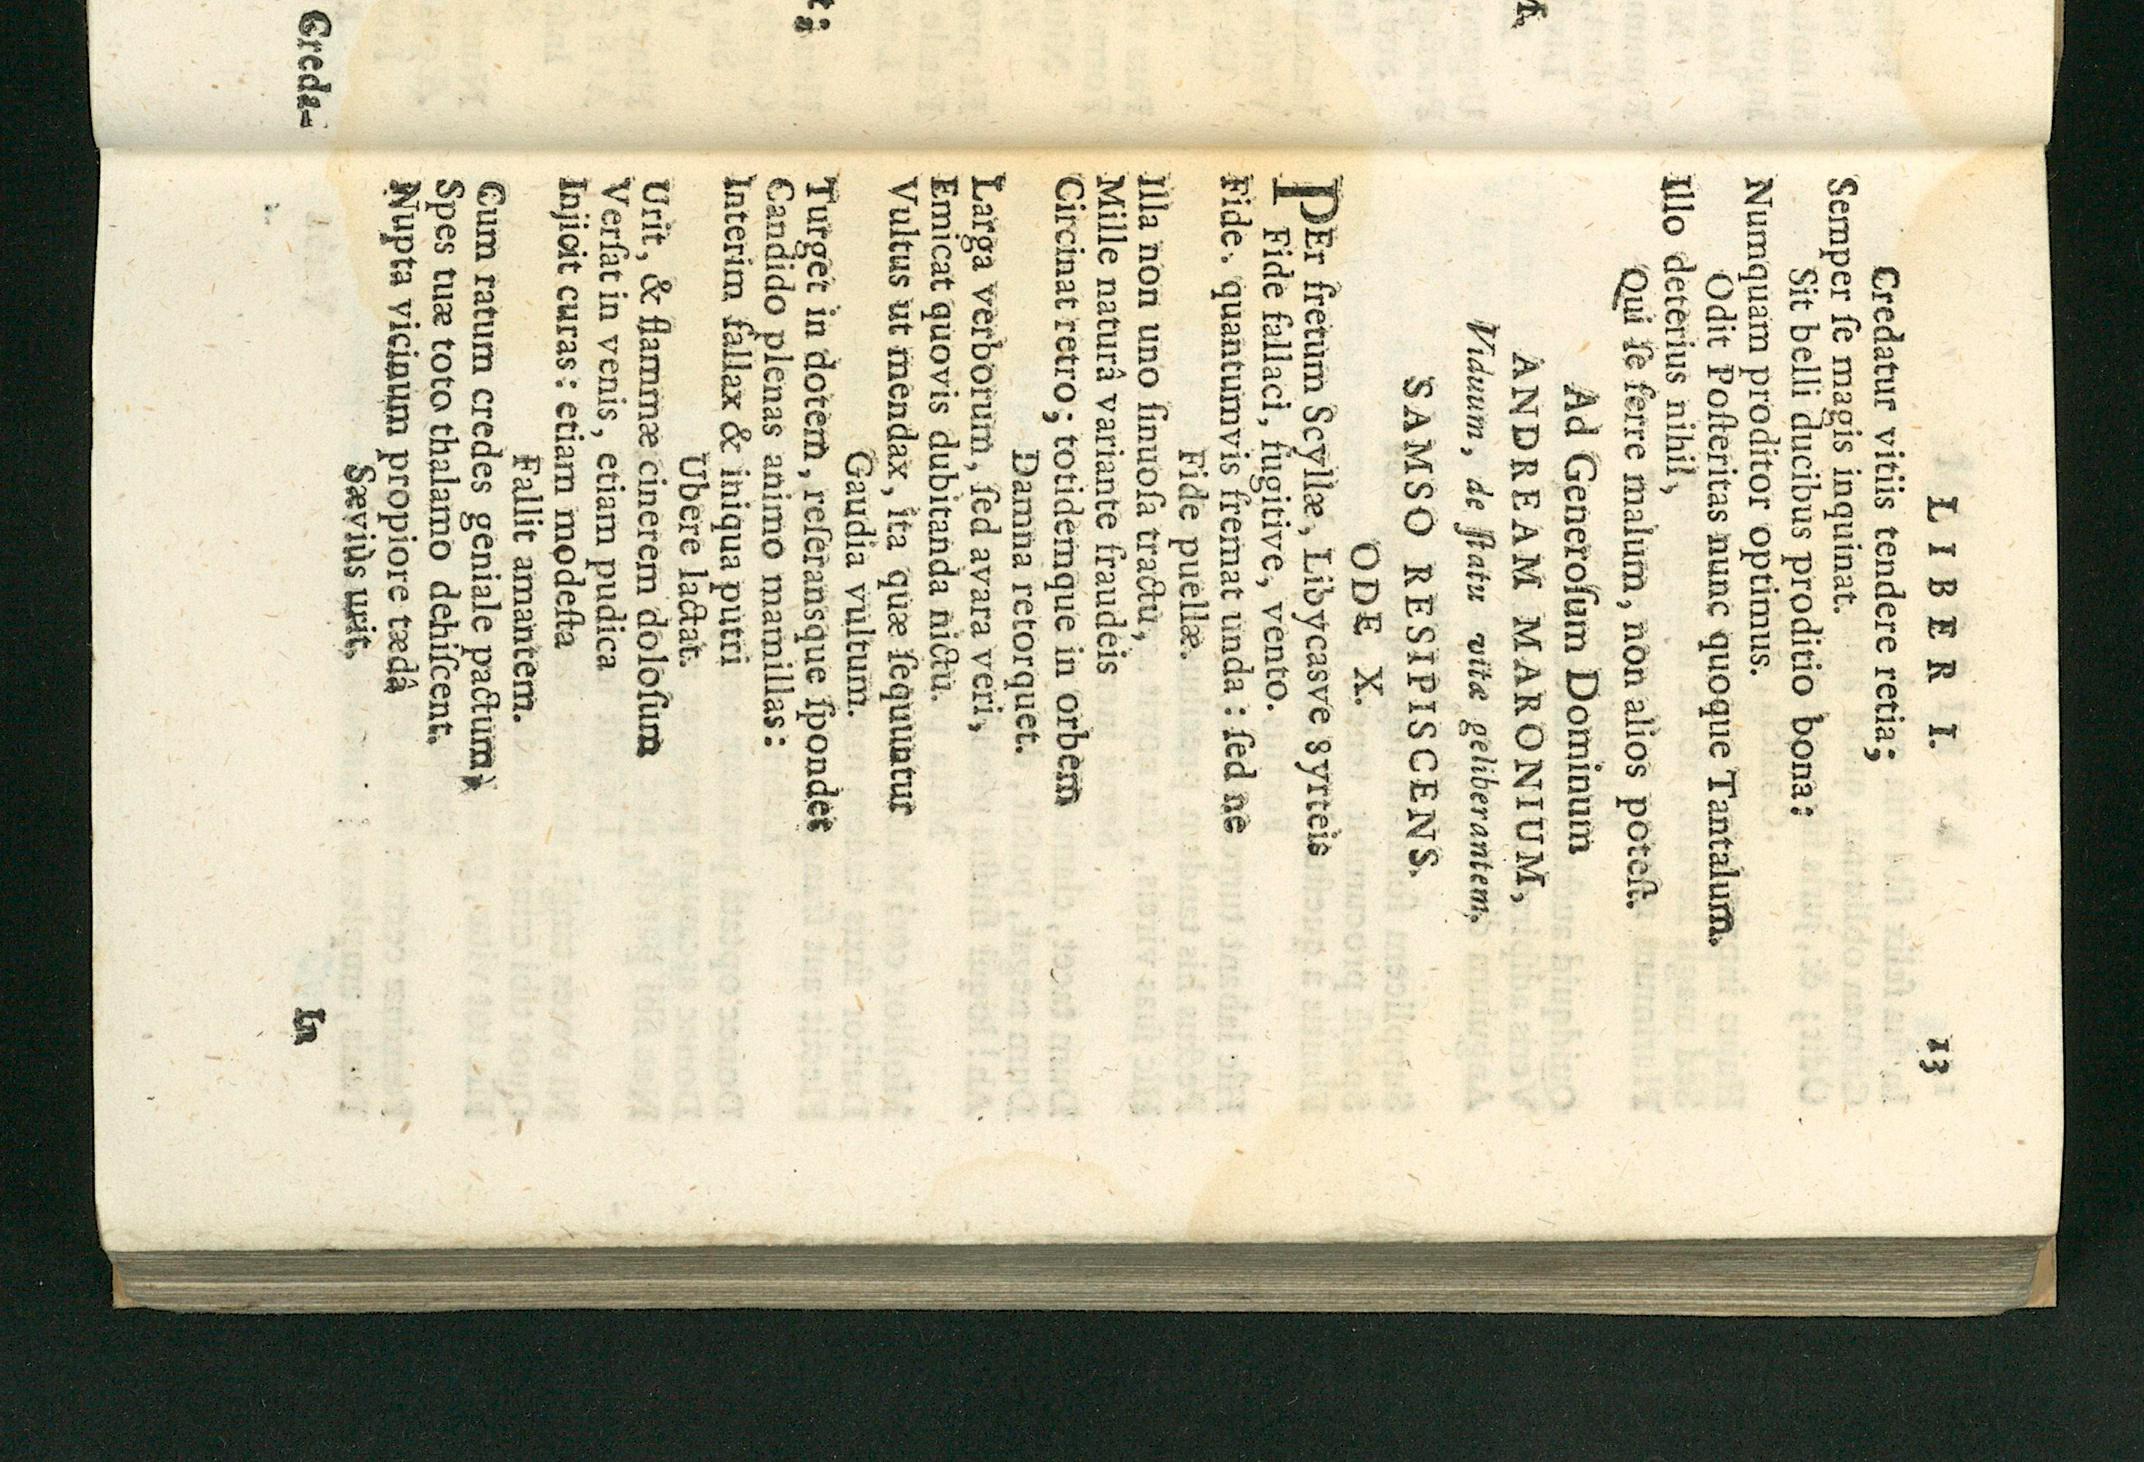 t;
M,
Creda-
LIBER I. 13
Credatur vitiis tendere retia;
Semper ſe magis inquinat.
Sit belli ducibus proditio bona:
Numquam proditor optimus.
Odit Poſteritas nunc quoque Tantalum.
Illo deterius nihil,
Qui ſe ferre malum, non alios poteſt.
Ad Generoſum Dominum
ANDREAM MARONIUM,
Viduum, de ſtatu vitæ geliberantem,
SAMSO RESIPISCENS.
ODE X.
PEr fretum Scyllæ, Libycasve Syrteis
Fide fallaci, fugitive, vento.
Fide, quantumvis fremat unda: ſed ne
Fide puellæ.
Illa non uno ſinuoſa tractu,
Mille naturâ variante fraudeis
Circinat retro; totidemque in orbem
Damna retorquet.
Larga verborum, ſed avara veri,
Emicat quovis dubitanda nictu.
Vultus ut mendax, ita quæ ſequuntur
Gaudia vultum.
Turget in dotem, reſeransque ſpondet
Candido plenas animo mamillas:
Interim fallax & iniqua putri
Ubere lactat.
Urit, & flammæ cinerem doloſum
Verſat in venis, etiam pudica
Injicit curas: etiam modeſta
Fallit amantem.
Cum ratum credes geniale pactum,
Spes tuæ toto thalamo dehiſcent,
Nupta vicinum propiore tædâ
Sæviùs urit,
In